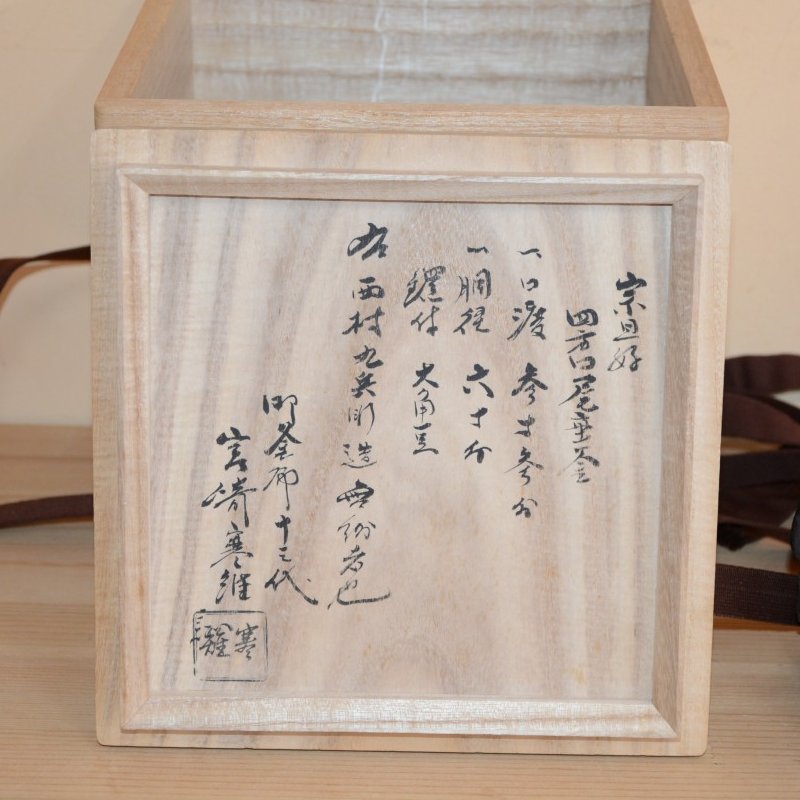 宗旦好
四方口尾垂釜
一口渡 参寸参分
一胴径 六寸分
鐶付 大角豆
右西村九兵衛造無紛者也
御釜師十三代
宮崎寒雉
寒雉